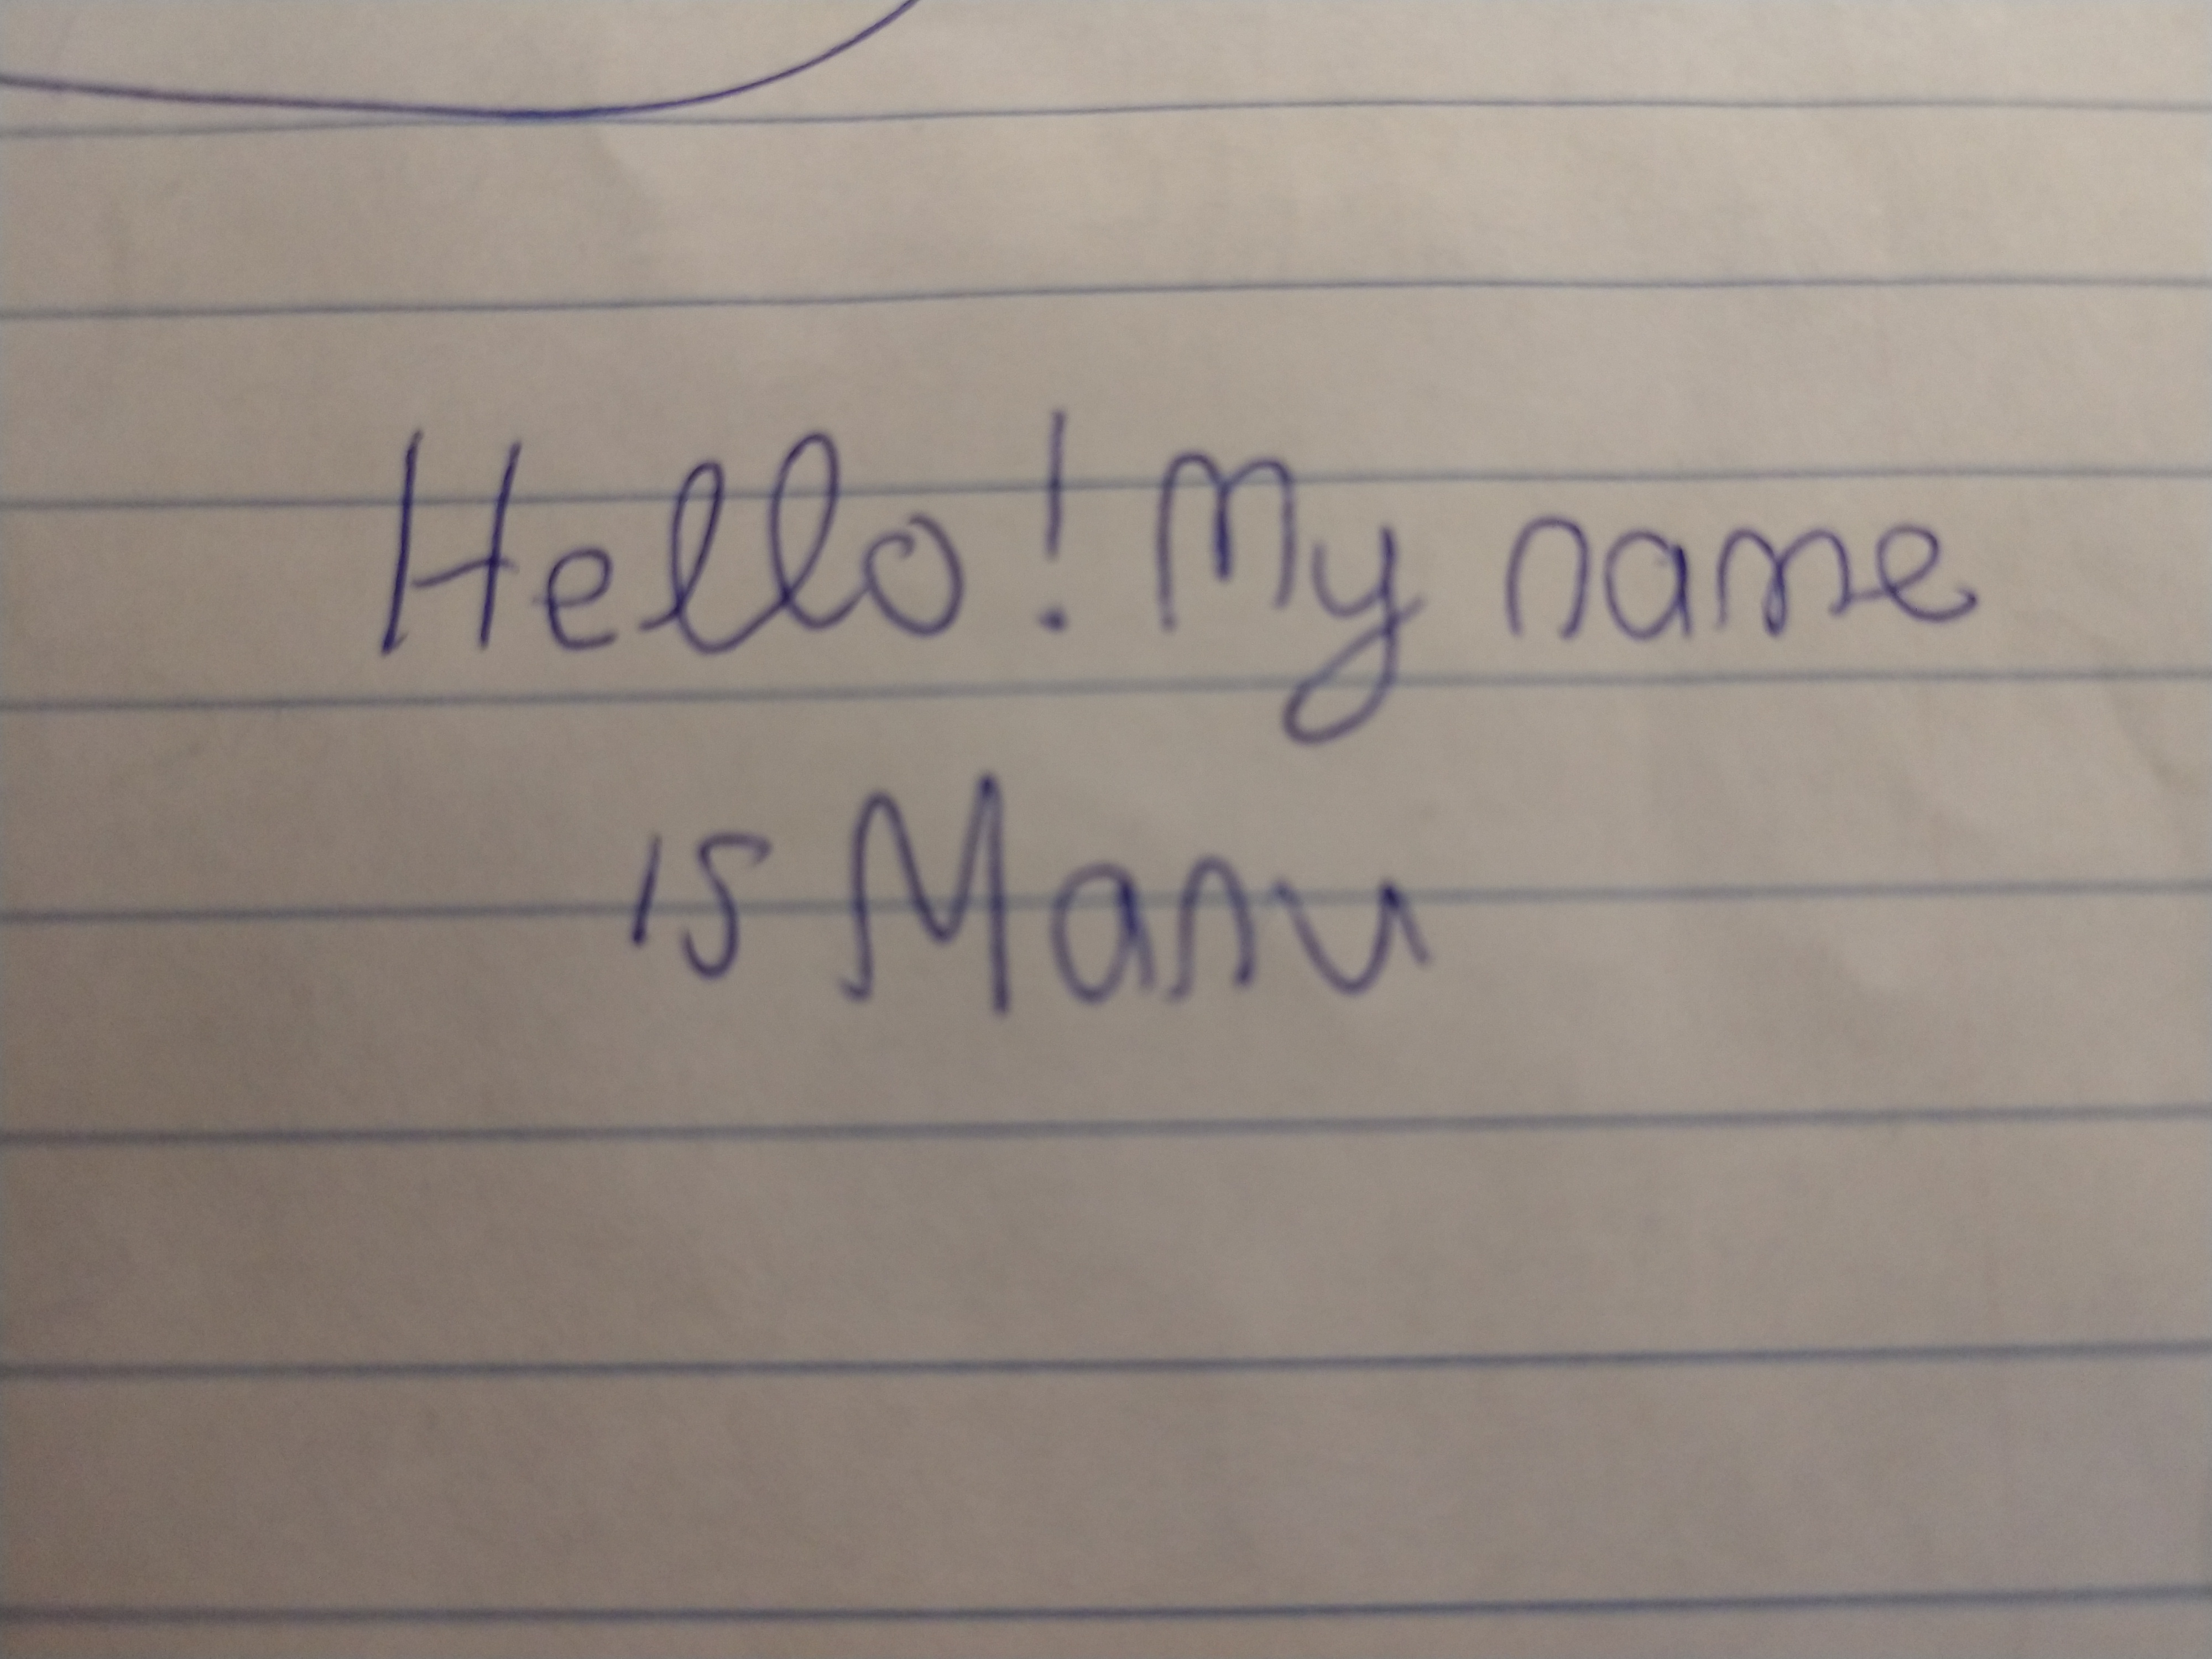 Hello! My name
is Manu